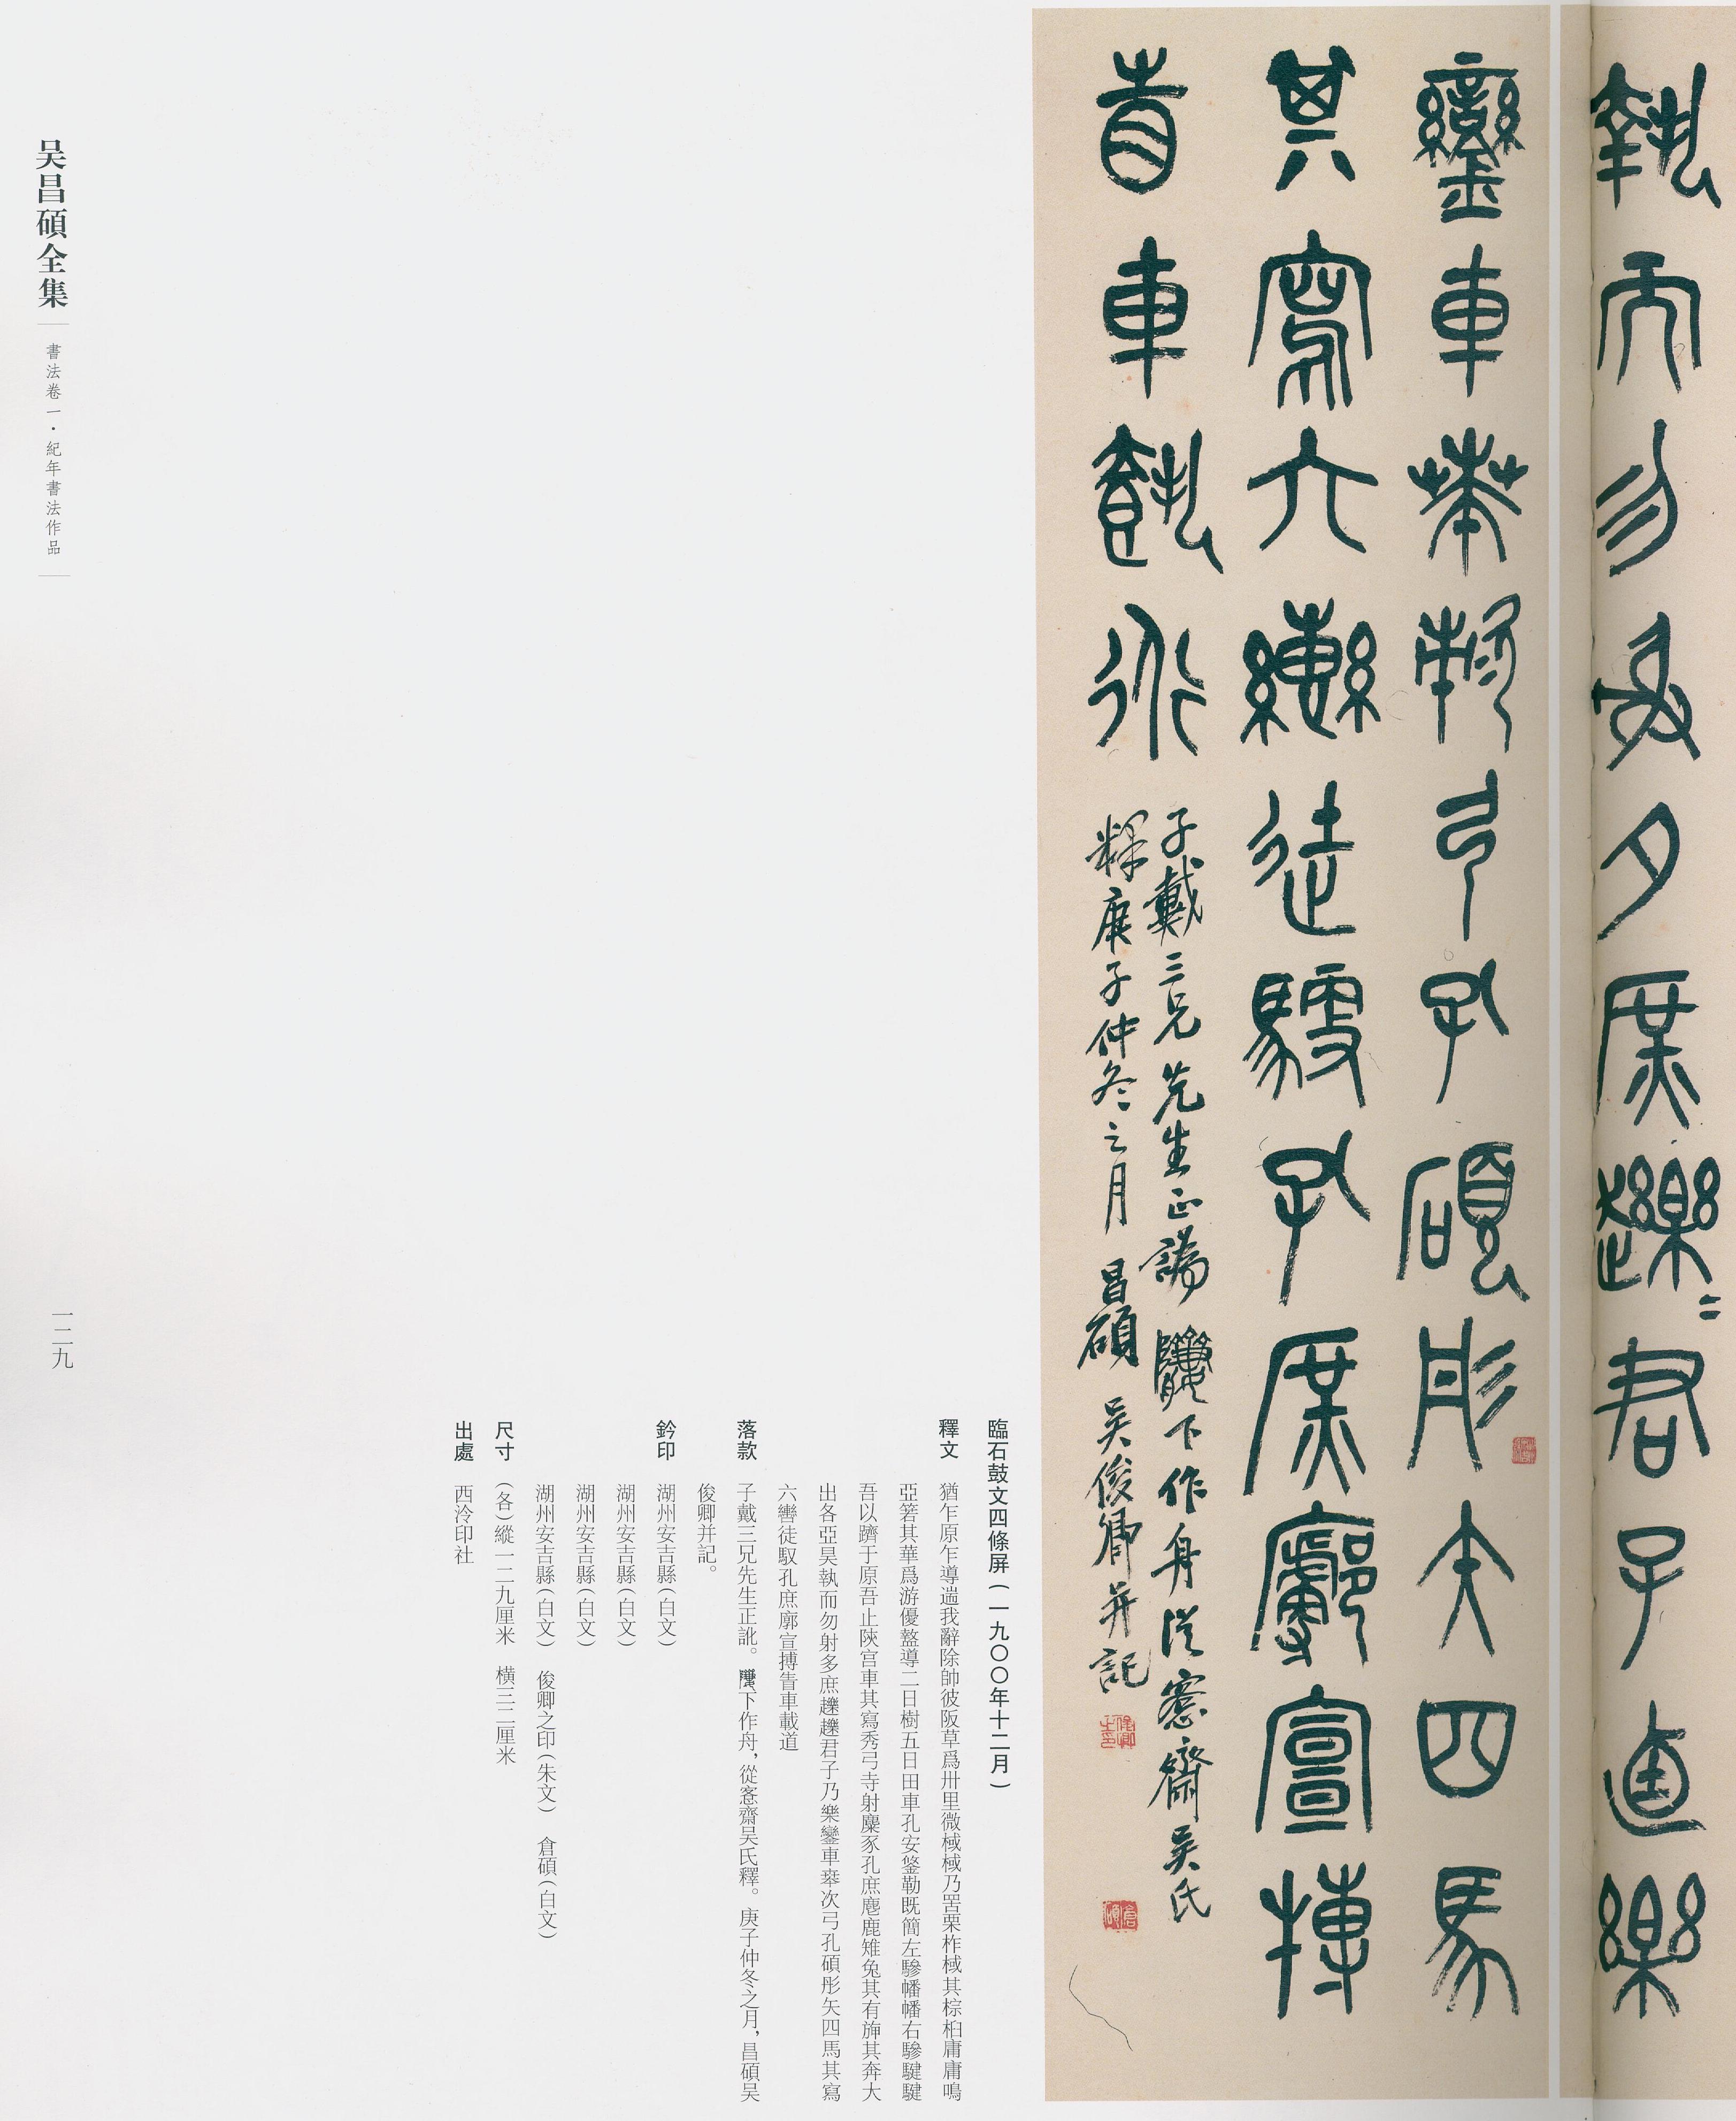 執而勿射多庶趮=君子迺樂
鑾車𠦪敕弓孔碩彤矢四馬
其寫六轡徒馭孔庶廓宣搏
眚車載行
子戴三兄先生正譌 下作舟從愙齋吳氏
釋庚子仲冬之月 昌碩吳俊卿并記
臨石鼓文四條屏(一九〇〇年十二月)
釋文 猶乍原乍導遄我辭除帥彼阪草爲卅里微棫棫乃罟栗柞棫其棕栢庸庸鳴
亞箬其華爲游優盩導二日樹五日田車孔安鋚勒既簡左驂幡幡右驂騝騝
吾以隮于原吾止陝宫車其寫秀弓寺射麋豕孔庶麀鹿雉兔其有旆其奔大
出各亞昊執而勿射多庶趮趮君子乃樂鑾車𠦪次弓孔碩彤矢四馬其寫
六轡徒馭孔庶廓宣搏眚車載道
落款 子戴三兄先生正訛。 下作舟,從愙齋吴氏釋。庚子仲冬之月,昌碩吴
俊卿并記。
鈐印 湖州安吉縣(白文)
湖州安吉縣(白文)
湖州安吉縣(白文)
湖州安吉縣(白文) 俊卿之印(朱文) 倉碩(白文)
尺寸 (各)縱一二九厘米 横三二厘米
出處 西泠印社
吴昌碩全集 書法卷一·紀年書法作品
一二九